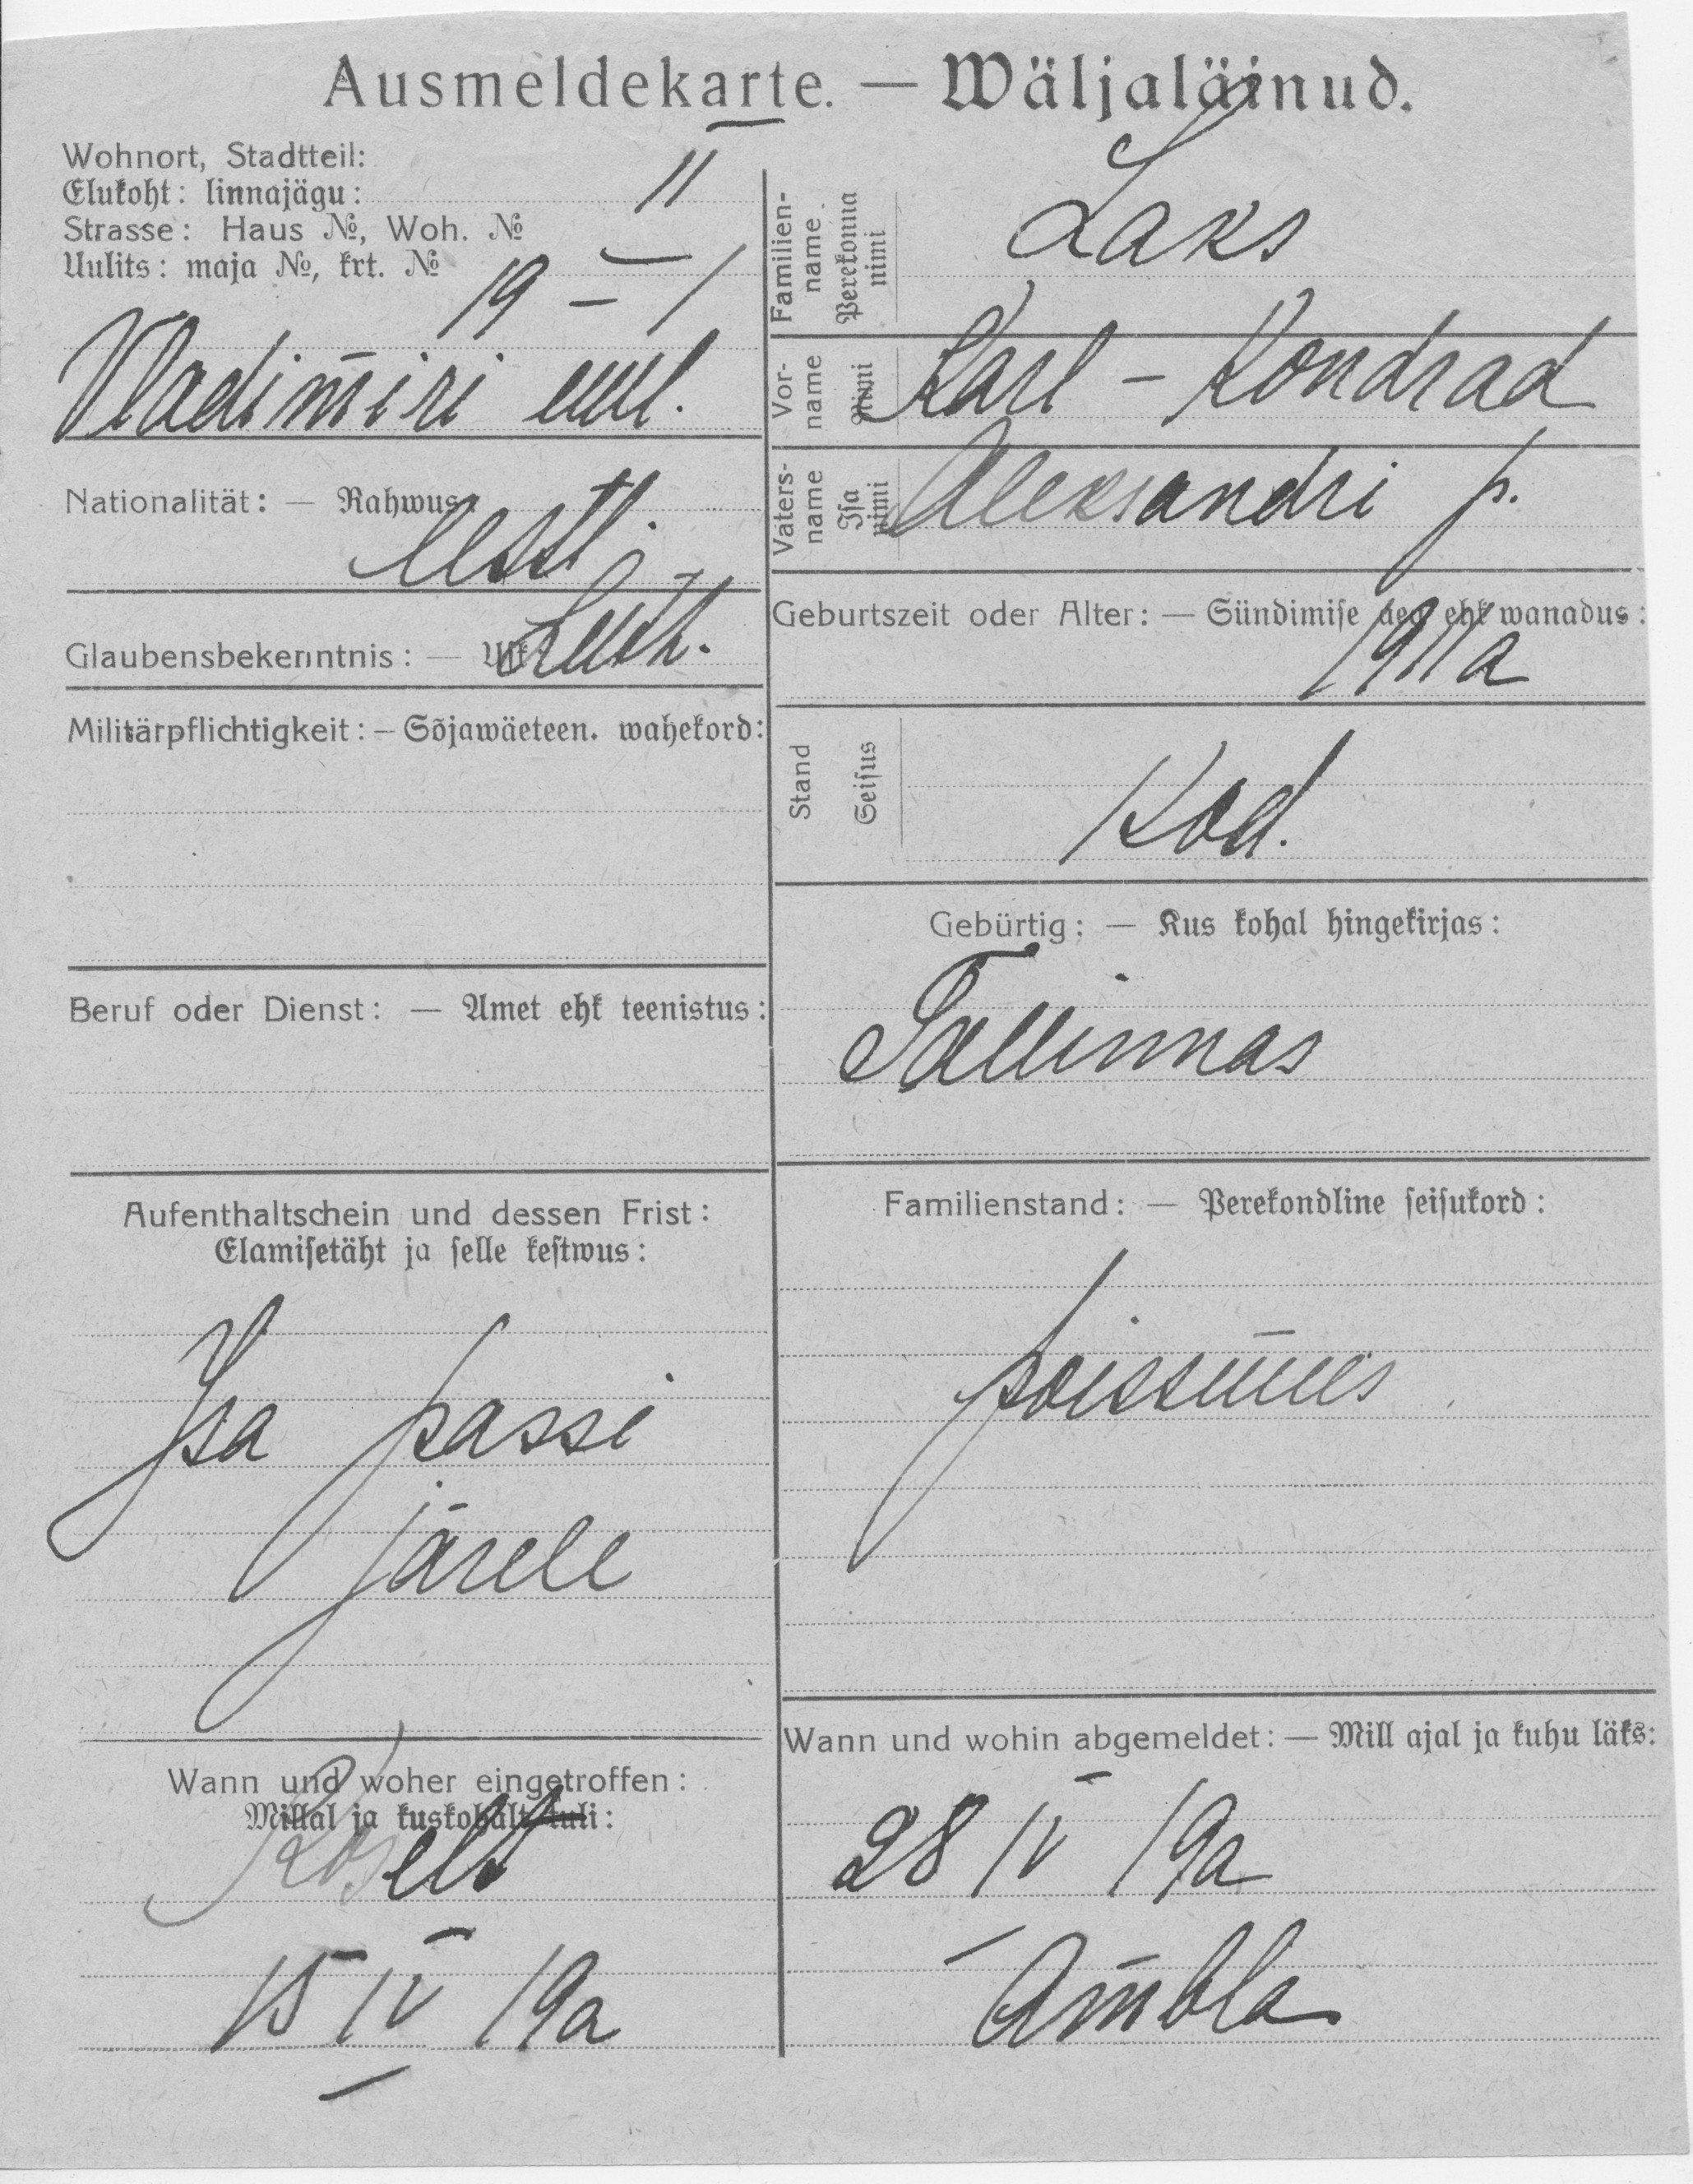 Ausmeldekarte. — Wäljaläinud.
Wohnort, Stadtteil:
Elukoht: linnajägu: II
Strasse: Haus №, Woh. №
Uulits: maja №, krt. № 19 – 1
Vladimiri uul.
Nationalität: — Rahwus
eesti
Glaubensbekenntnis: — Luth.
Militärpflichtigkeit: — Sõjawäeteen. wahekord:
Beruf oder Dienst: — Amet ehk teenistus:
Aufenthaltschein und dessen Frist:
Elamisetäht ja selle kestwus:
Isa passi
järele
Wann und woher eingetroffen:
Millal ja kuskohalt tuli:
Koselt
15 IV 19a
Familien-
name
Perekonna
nimi
Laks
Vor-
name
Nimi
Karl – Kondrad
Vaters-
name
Isa
nimi
Aleksandri p.
Geburtszeit oder Alter: — Sündimise aeg ehk wanadus:
1911a
Stand
Seisus
Kod.
Gebürtig: — Kus kohal hingekirjas:
Tallinnas
Familienstand: — Perekondline seisukord:
poissmees
Wann und wohin abgemeldet: — Mill ajal ja kuhu läks:
28 IV 19a
Ambla